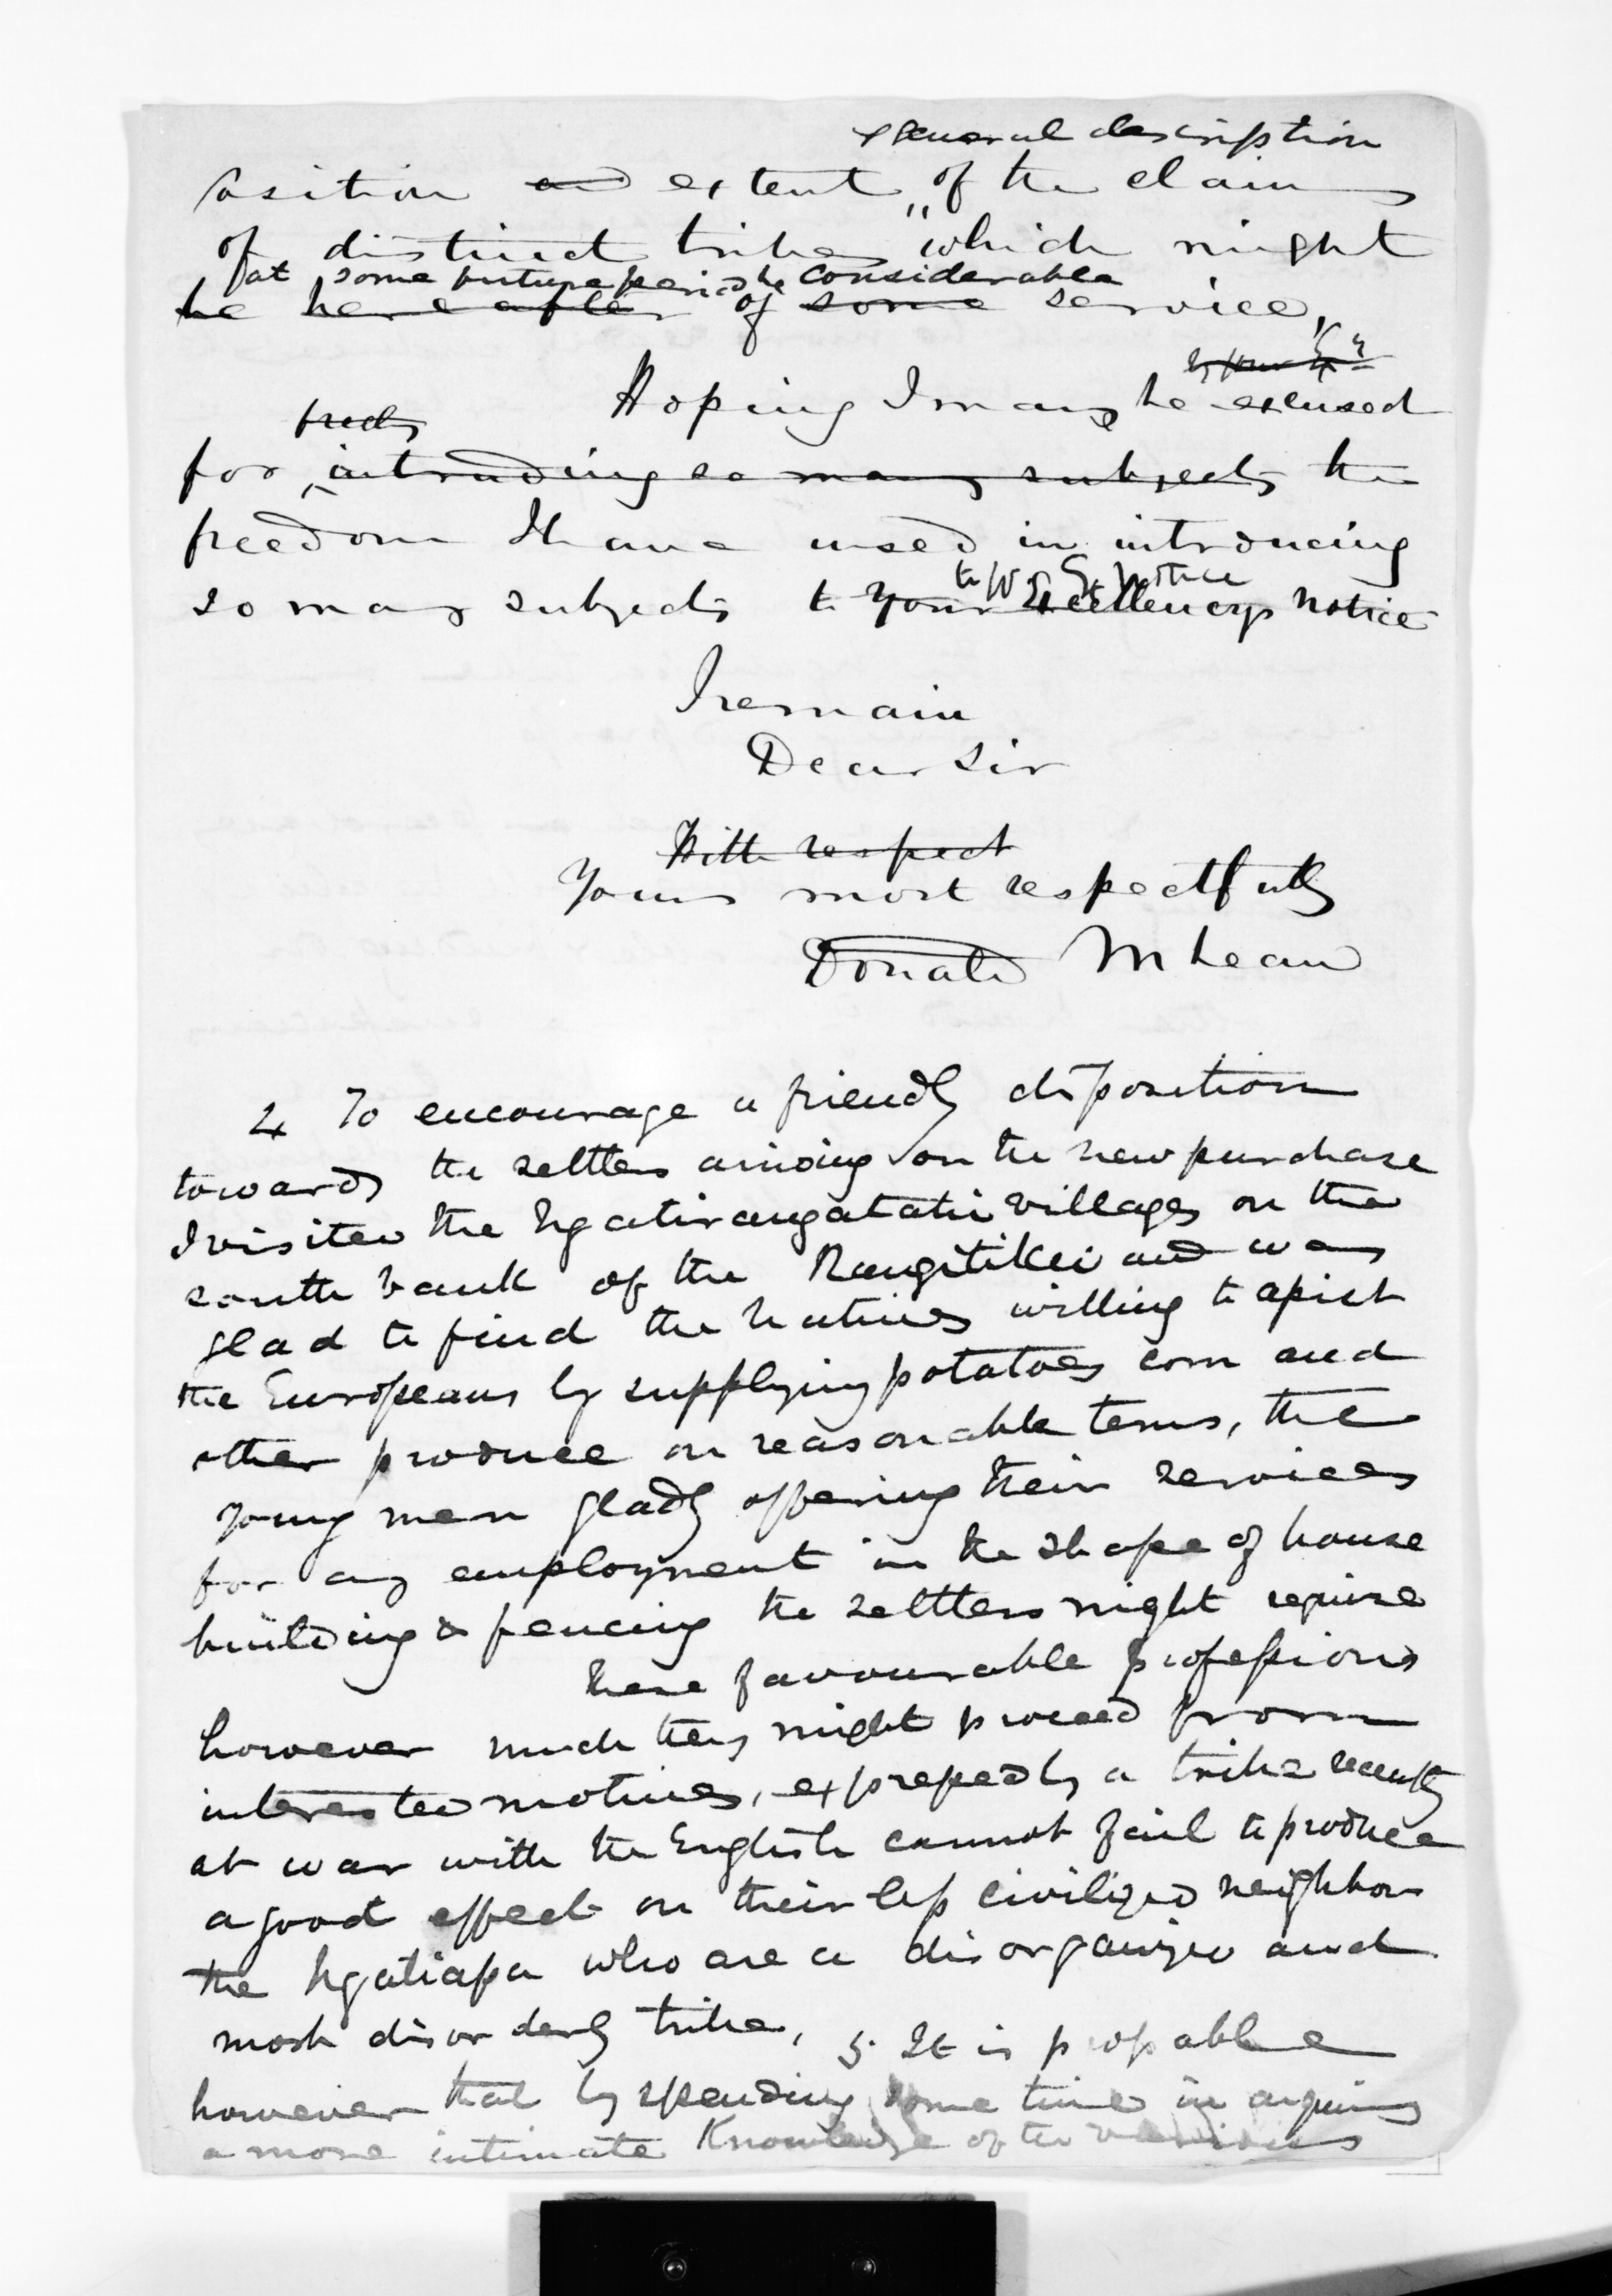 & general description
position and extent of the claims
of distinct tribes which might
at some future period be considerable
be hereafter of some service,
Hoping I may be excused
for intruding so many subjects the
freedom I have used in introducing
to His Ex notice
so many subjects to Your Excellencys notice
I remain
Dear Sir
With respect
Yours most respectfully
Donald McLean
4 To encourage a friendly disposition
towards the settlers arriving on the new purchase
I visited the Ngatiraugatahi villages on the
south bank of the Rangitikei and was
glad to find the natives willing to assist
the Europeans by supplying potatoes corn and
other produce on reasonable terms, the
young men gladly offering their services
for any employment in the shape of house
building & fencing the settlers might require
these favourable professions
however much they might proceed from
interested motives, expressed by a tribe recently
at war with the English cannot fail to produce
a good effect on their less civilized neighbors
the Ngatiapa who are a disorganized and
most disorderly tribe, 5. It is propable
however that by spending some time in acquiring
a more intimate Knowledge of the various